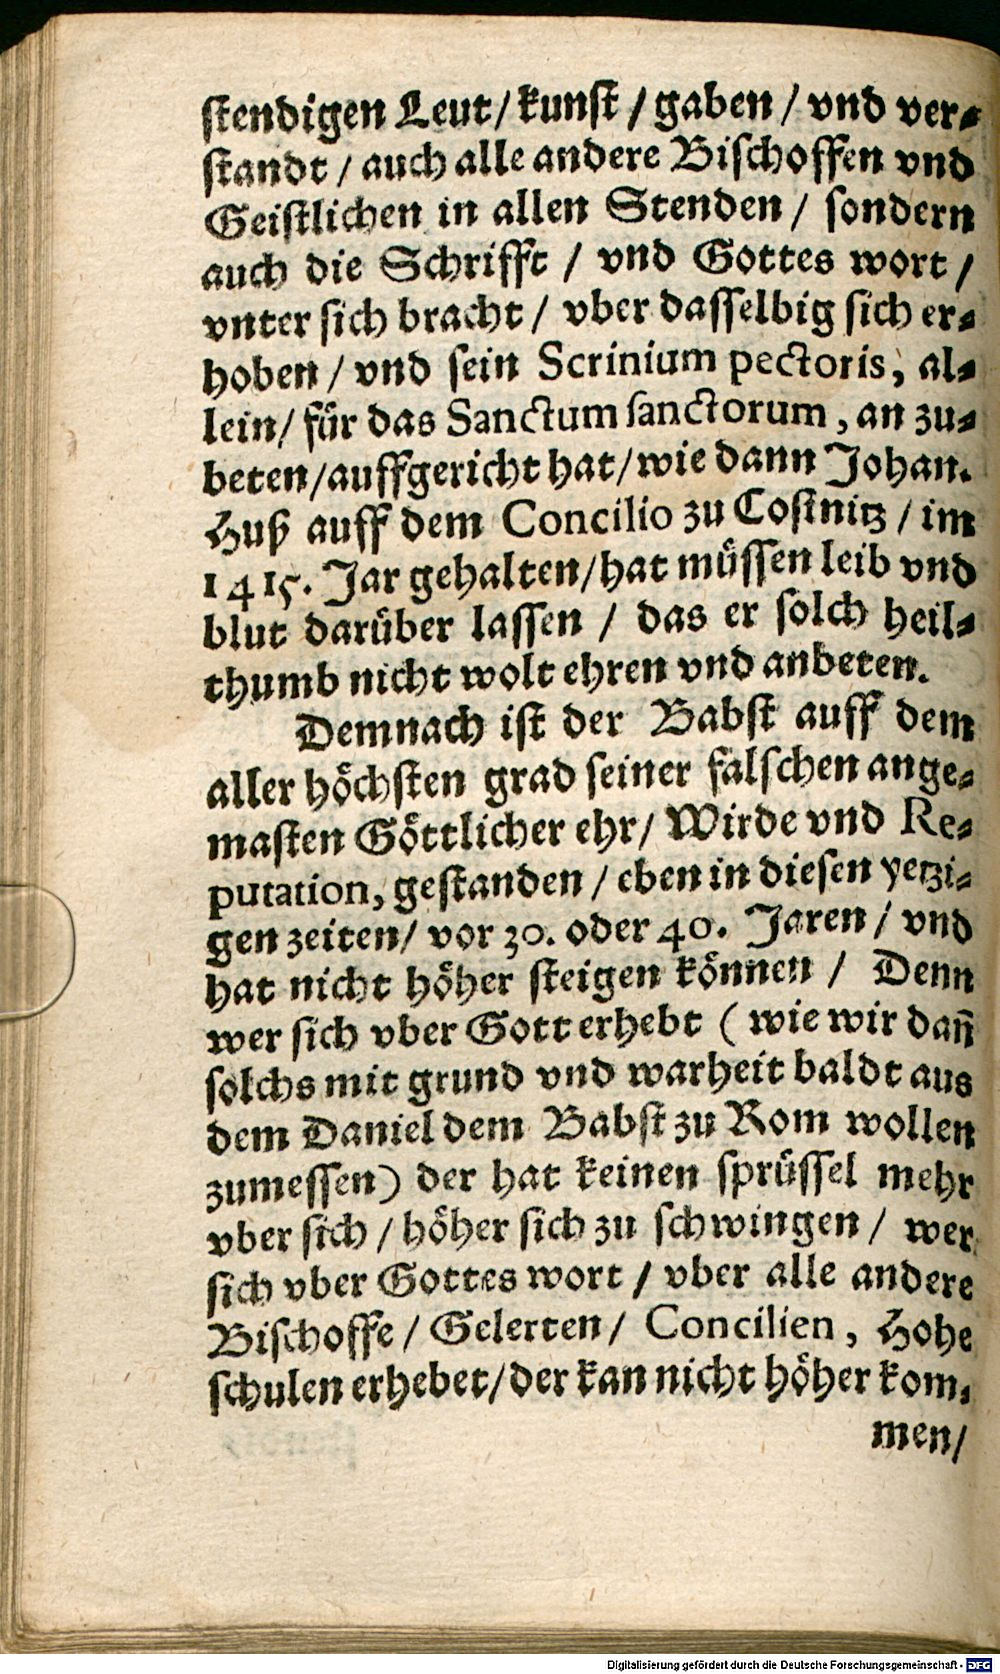 ſtendigen Leut/ kunſt / gaben / vnd ver⸗
ſtandt / auch alle andere Biſchoffen vnd
Geiſtlichen in allen Stenden / ſondern
auch die Schrifft / vnd Gottes wort /
vnter ſich bracht / vber daſſelbig ſich er⸗
hoben / vnd ſein Scrinium pectoris, al⸗
lein/ für das Sanctum ſanctorum, an zu⸗
beten/auffgericht hat/wie dann Johan.
Huß auff dem Concilio zu Coſtnitz / im
1415. Jar gehalten/hat müſſen leib vnd
blut darüber laſſen / das er ſolch heil⸗
thumb nicht wolt ehren vnd anbeten.
Demnach iſt der Babſt auff dem
aller höchſten grad ſeiner falſchen ange⸗
maſten Göttlicher ehr/ Wirde vnd Re⸗
putation, geſtanden / eben in dieſen yetzi⸗
gen zeiten/ vor 30. oder 40. Jaren / vnd
hat nicht höher ſteigen können / Denn
wer ſich vber Gott erhebt ( wie wir dañ
ſolchs mit grund vnd warheit baldt aus
dem Daniel dem Babſt zu Rom wollen
zumeſſen) der hat keinen ſprüſſel mehr
vber ſich / höher ſich zu ſchwingen / wer
ſich vber Gottes wort / vber alle andere
Biſchoffe / Gelerten/ Concilien, Hohe
ſchulen erhebet/der kan nicht höher kom⸗
men/
Digitalisierung gefördert durch die Deutsche Forschungsgemeinschaft - DFG